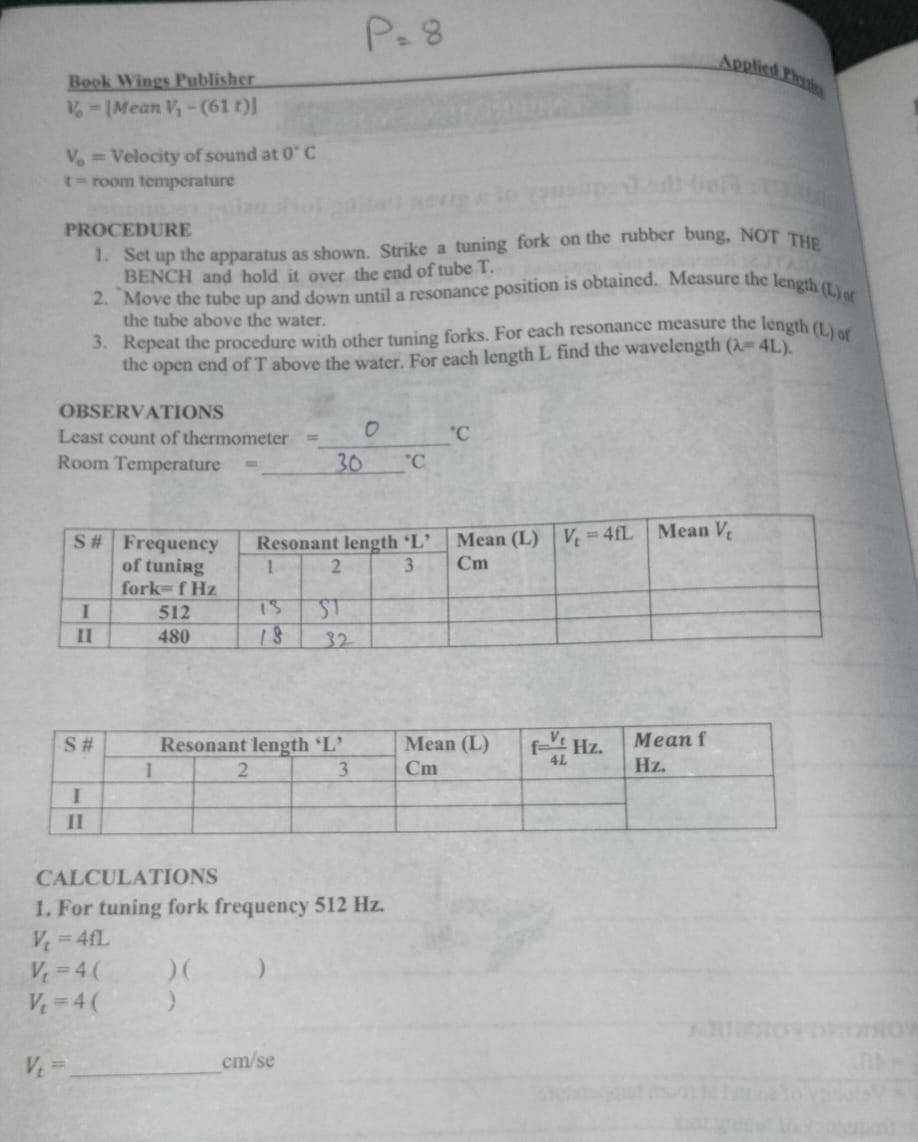 P=8
Book Wings Publisher Applied Physics
V₀ = [Mean Vₜ – (61 t)]
V₀ = Velocity of sound at 0° C
t = room temperature
PROCEDURE
1. Set up the apparatus as shown. Strike a tuning fork on the rubber bung, NOT THE
BENCH and hold it over the end of tube T.
2. Move the tube up and down until a resonance position is obtained. Measure the length (L) of
the tube above the water.
3. Repeat the procedure with other tuning forks. For each resonance measure the length (L) of
the open end of T above the water. For each length L find the wavelength (λ= 4L).
OBSERVATIONS
Least count of thermometer = 0 °C
Room Temperature = 30 °C
S # Frequency Resonant length ‘L’ Mean (L) Vₜ = 4fL Mean Vₜ
of tuning 1 2 3 Cm
fork= f Hz
I 512 18 51
II 480 18 32
S # Resonant length ‘L’ Mean (L) f=Vₜ/4L Hz. Mean f
1 2 3 Cm Hz.
I
II
CALCULATIONS
1. For tuning fork frequency 512 Hz.
Vₜ = 4fL
Vₜ = 4 ( ) ( )
Vₜ = 4 ( )
Vₜ = ____________ cm/se